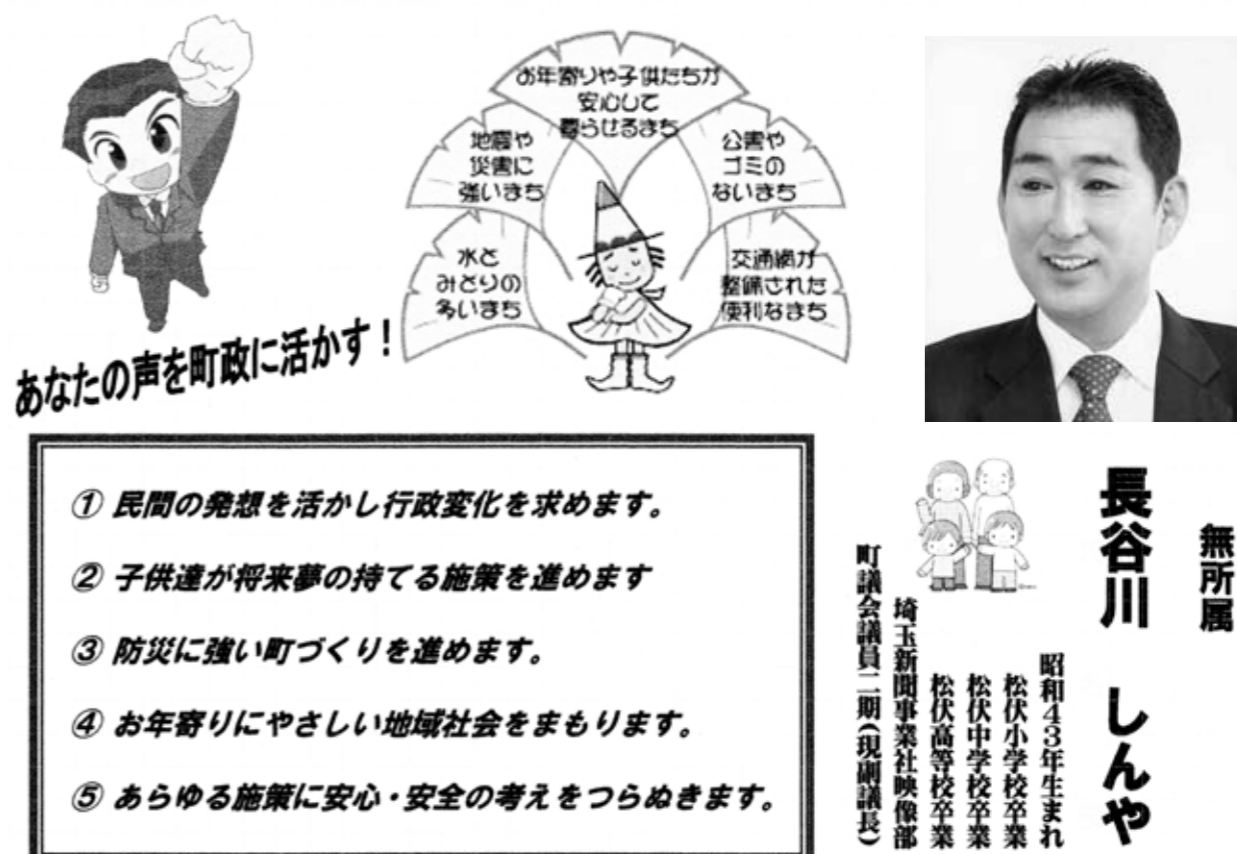 あなたの声を町政に活かす！
お年寄りや子供たちが
安心して
暮らせるまち
地震や
災害に
強いまち
公害や
ゴミの
ないまち
水と
みどりの
多いまち
交通網が
整備された
便利なまち
① 民間の発想を活かし行政変化を求めます。
② 子供達が将来夢の持てる施策を進めます
③ 防災に強い町づくりを進めます。
④ お年寄りにやさしい地域社会をまもります。
⑤ あらゆる施策に安心・安全の考えをつらぬきます。
無所属
長谷川 しんや
昭和43年生まれ
松伏小学校卒業
松伏中学校卒業
松伏高等校卒業
埼玉新聞事業社映像部
町議会議員二期(現副議長)